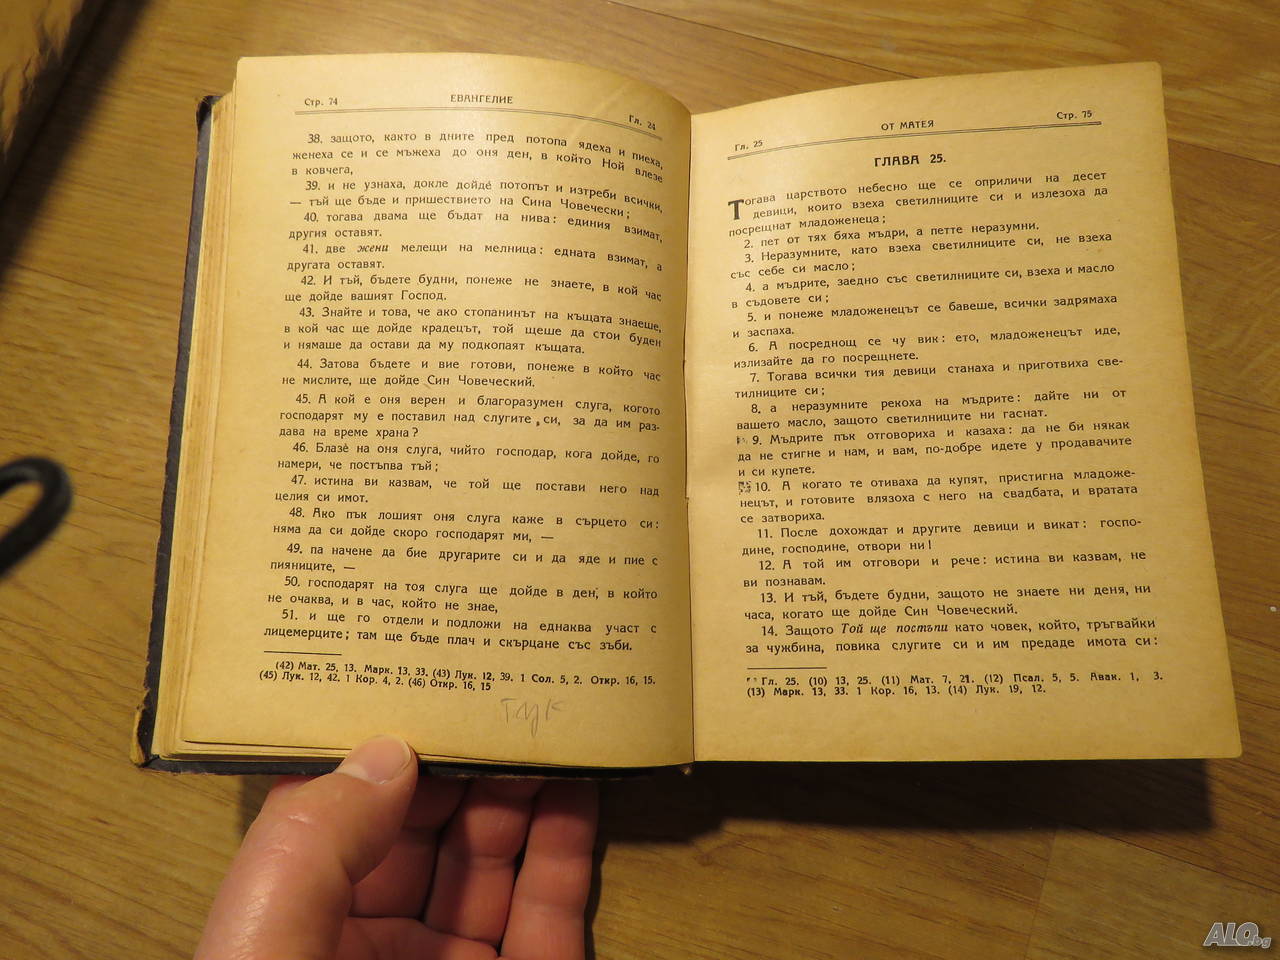 Стр. 74
ЕВАНГЕЛИЕ
Гл. 24
38. защото, както в дните пред потопа ядеха и пиеха,
женеха се и се мъжеха до оня ден, в който Ной влезе
в ковчега,
39. и не узнаха, докле дойдѐ потопът и изтреби всички,
— тъй ще бъде и пришествието на Сина Човечески;
40. тогава двама ще бъдат на нива: единия взимат,
другия оставят.
41. две жени мелещи на мелница: едната взимат, а
другата оставят.
42. И тъй, бъдете будни, понеже не знаете, в кой час
ще дойде вашият Господ.
43. Знайте и това, че ако стопанинът на къщата знаеше,
в кой час ще дойде крадецът, той щеше да стои буден
и нямаше да остави да му подкопаят къщата.
44. Затова бъдете и вие готови, понеже в който час
не мислите, ще дойде Син Човеческий.
45. А кой е оня верен и благоразумен слуга, когото
господарят му е поставил над слугите си, за да им раз-
дава на време храна?
46. Блазѐ на оня слуга, чийто господар, кога дойде, го
намери, че постъпва тъй;
47. истина ви казвам, че той ще постави него над
целия си имот.
48. Ако пък лошият оня слуга каже в сърцето си:
няма да си дойде скоро господарят ми, —
49. па начене да бие другарите си и да яде и пие с
пияниците, —
50. господарят на тоя слуга ще дойде в ден, в който
не очаква, и в час, който не знае,
51. и ще го отдели и подложи на еднаква участ с
лицемерците; там ще бъде плач и скърцане със зъби.
(42) Мат. 25, 13. Марк. 13, 33. (43) Лук. 12, 39. 1 Сол. 5, 2. Откр. 16, 15.
(45) Лук. 12, 42. 1 Кор. 4, 2. (46) Откр. 16, 15
Тук
Гл. 25
ОТ МАТЕЯ
Стр. 75
ГЛАВА 25.
Тогава царството небесно ще се оприличи на десет
девици, които взеха светилниците си и излезоха да
посрещнат младоженеца;
2. пет от тях бяха мъдри, а петте неразумни.
3. Неразумните, като взеха светилниците си, не взеха
със себе си масло;
4. а мъдрите, заедно със светилниците си, взеха и масло
в съдовете си;
5. и понеже младоженецът се бавеше, всички задрямаха
и заспаха.
6. А посреднощ се чу вик: ето, младоженецът иде,
излизайте да го посрещнете.
7. Тогава всички тия девици станаха и приготвиха све-
тилниците си;
8. а неразумните рекоха на мъдрите: дайте ни от
вашето масло, защото светилниците ни гаснат.
9. Мъдрите пък отговориха и казаха: да не би някак
да не стигне и нам, и вам, по-добре идете у продавачите
и си купете.
10. А когато те отиваха да купят, пристигна младоже-
нецът, и готовите влязоха с него на свадбата, и вратата
се затвориха.
11. После дохождат и другите девици и викат: госпо-
дине, господине, отвори ни!
12. А той им отговори и рече: истина ви казвам, не
ви познавам.
13. И тъй, бъдете будни, защото не знаете ни деня, ни
часа, когато ще дойде Син Човеческий.
14. Защото Той ще постъпи като човек, който, тръгвайки
за чужбина, повика слугите си и им предаде имота си:
Гл. 25. (10) 13, 25. (11) Мат. 7, 21. (12) Псал. 5, 5. Авак. 1, 3.
(13) Марк. 13, 33. 1 Кор. 16, 13. (14) Лук. 19, 12.
ALO.bg